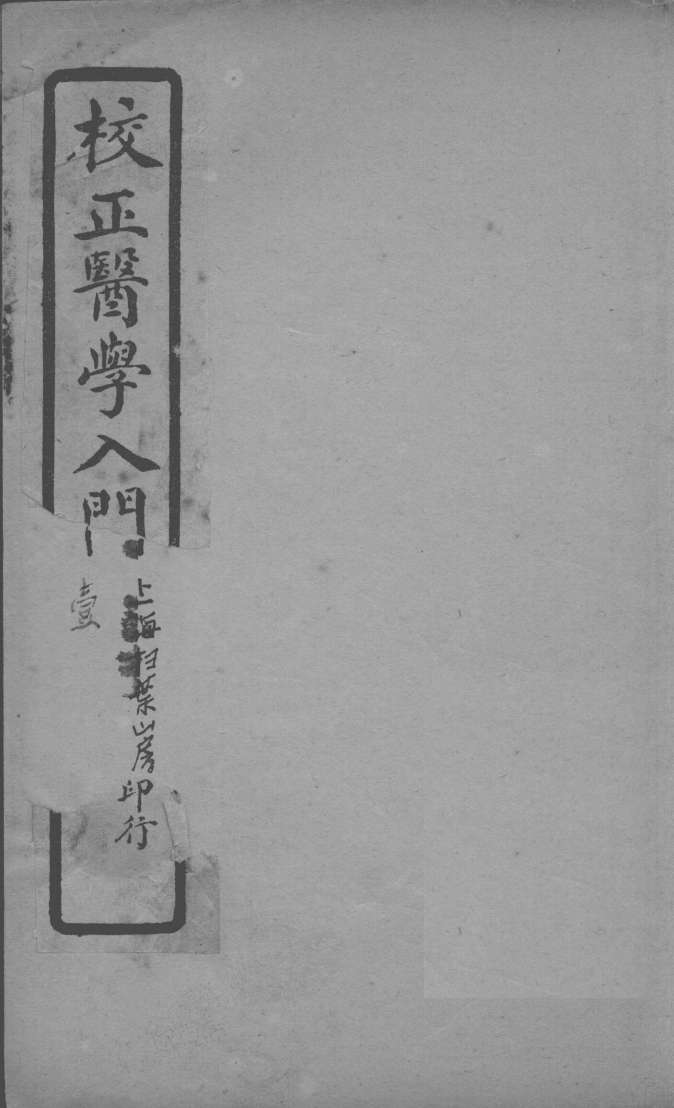 校正醫學入門
上海扫葉山房印行
壹